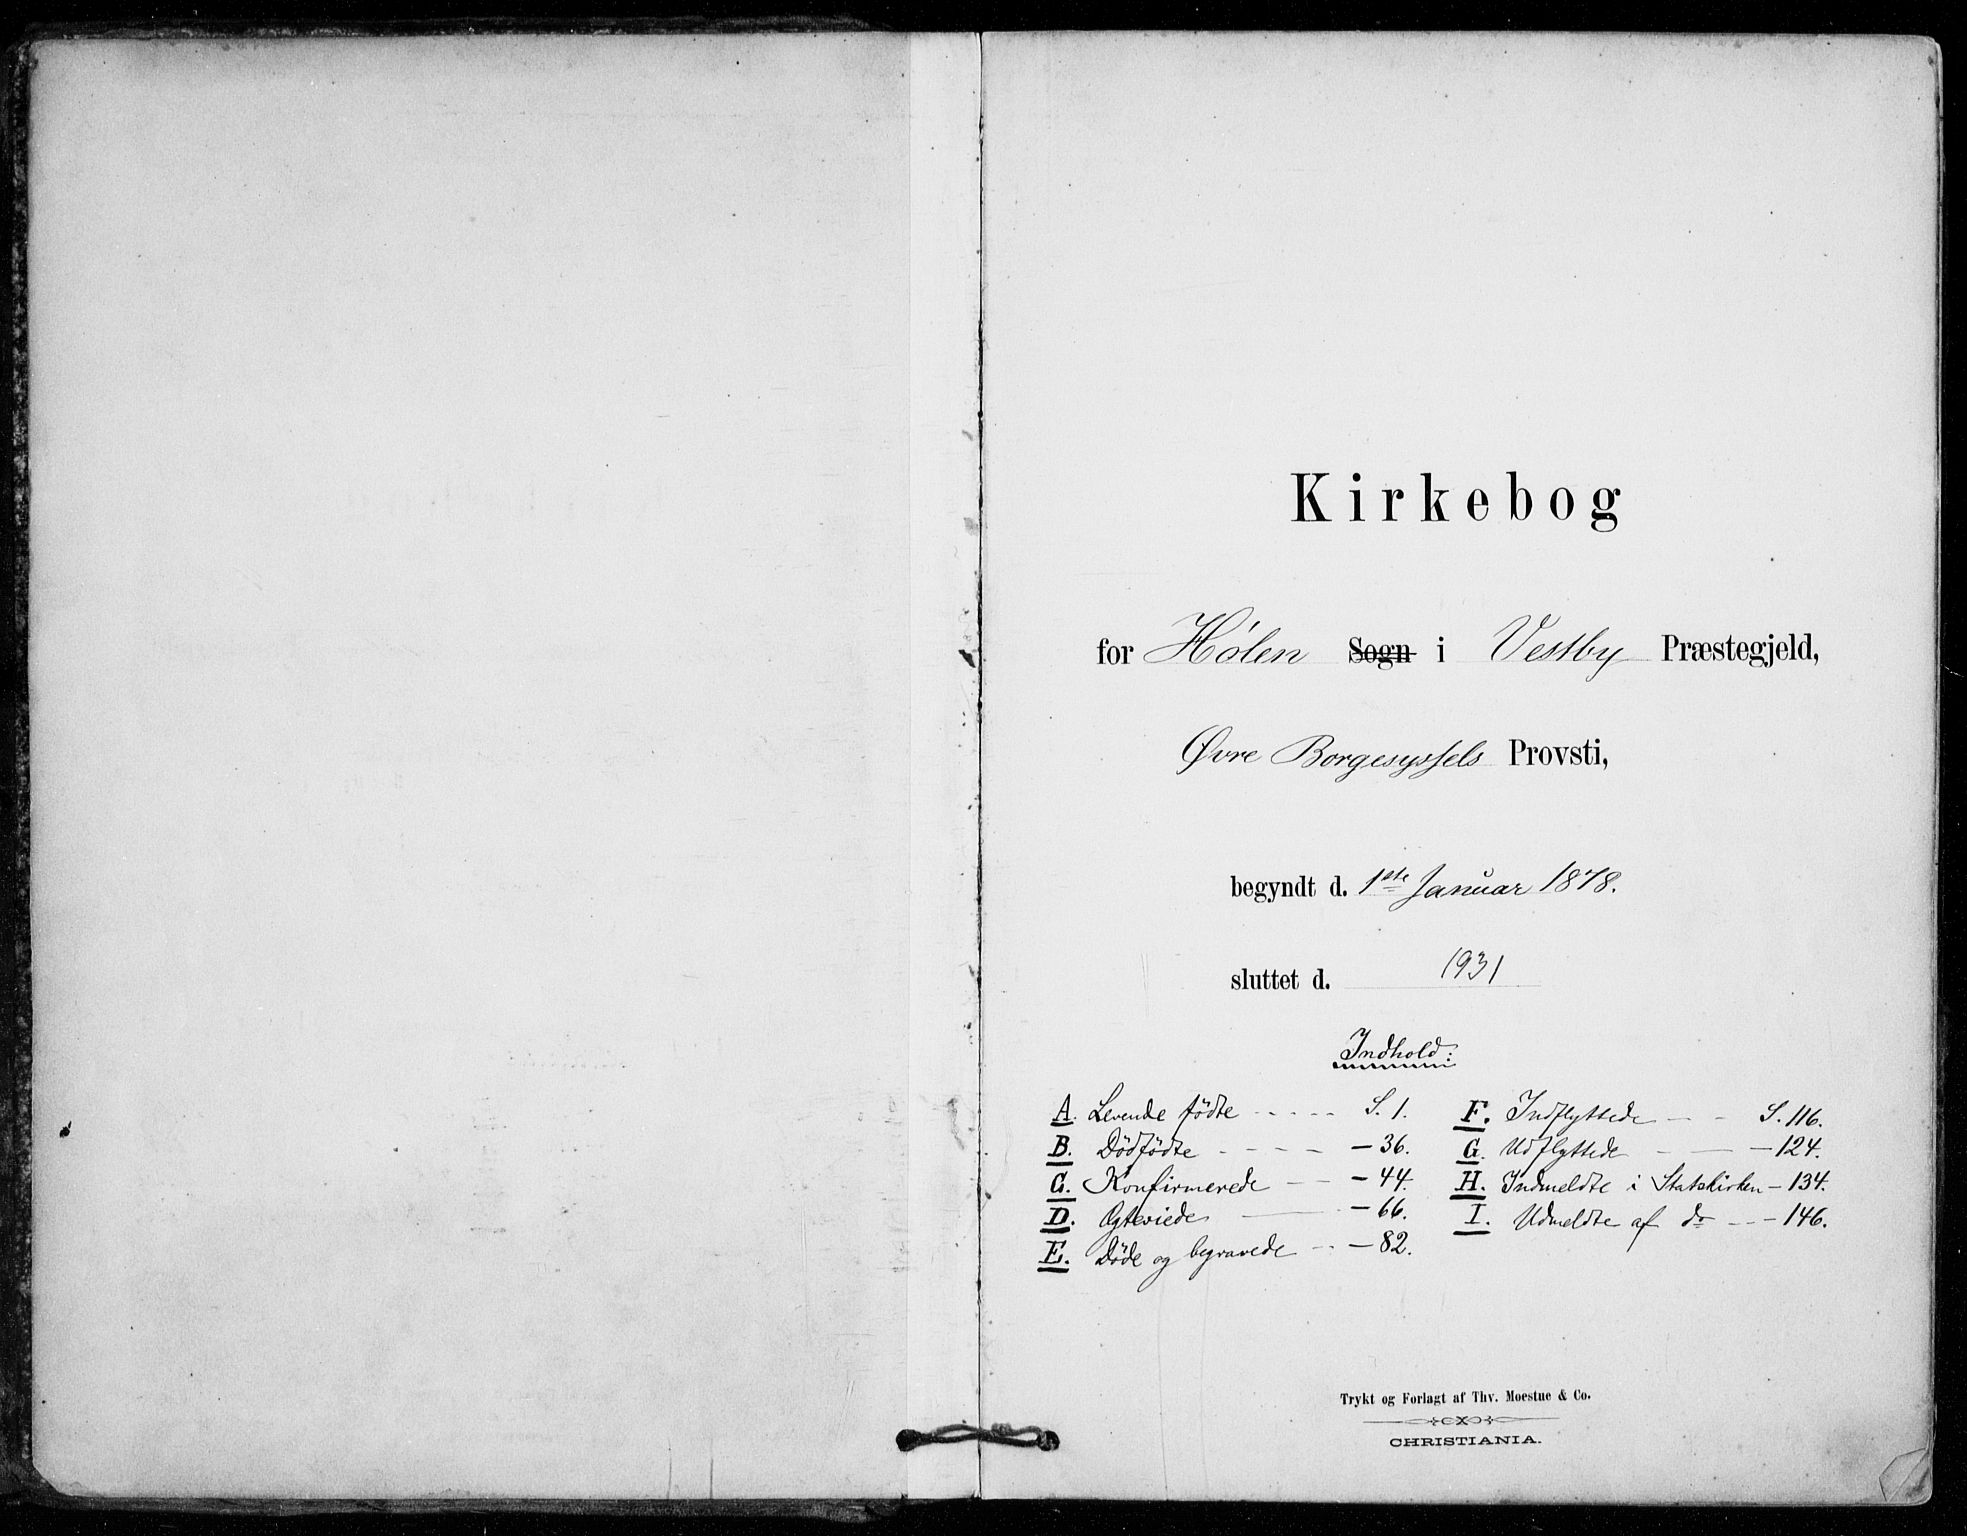 Kirkebog
for Hølen Sogn i Vestby Præstegjeld,
Øvre Borgesyssels Provsti,
begyndt d. 1ste Januar 1878.
sluttet d. 1931
Indhold:
A. Levende fødte - - - - - S. 1.
B. Dödfödte - - - - - 36.
C. Konfirmerede - - - 44.
D. Ægteviede - 66.
E. Döde og begravede - - - 82.
F. Indflyttede - - S. 116.
G. Udflyttede - - - 124.
H. Indmeldte i Statskirken - 134.
I. Udmeldte af do - - - 146.
Trykt og Forlagt af Thv. Moestue & Co.
CHRISTIANIA.